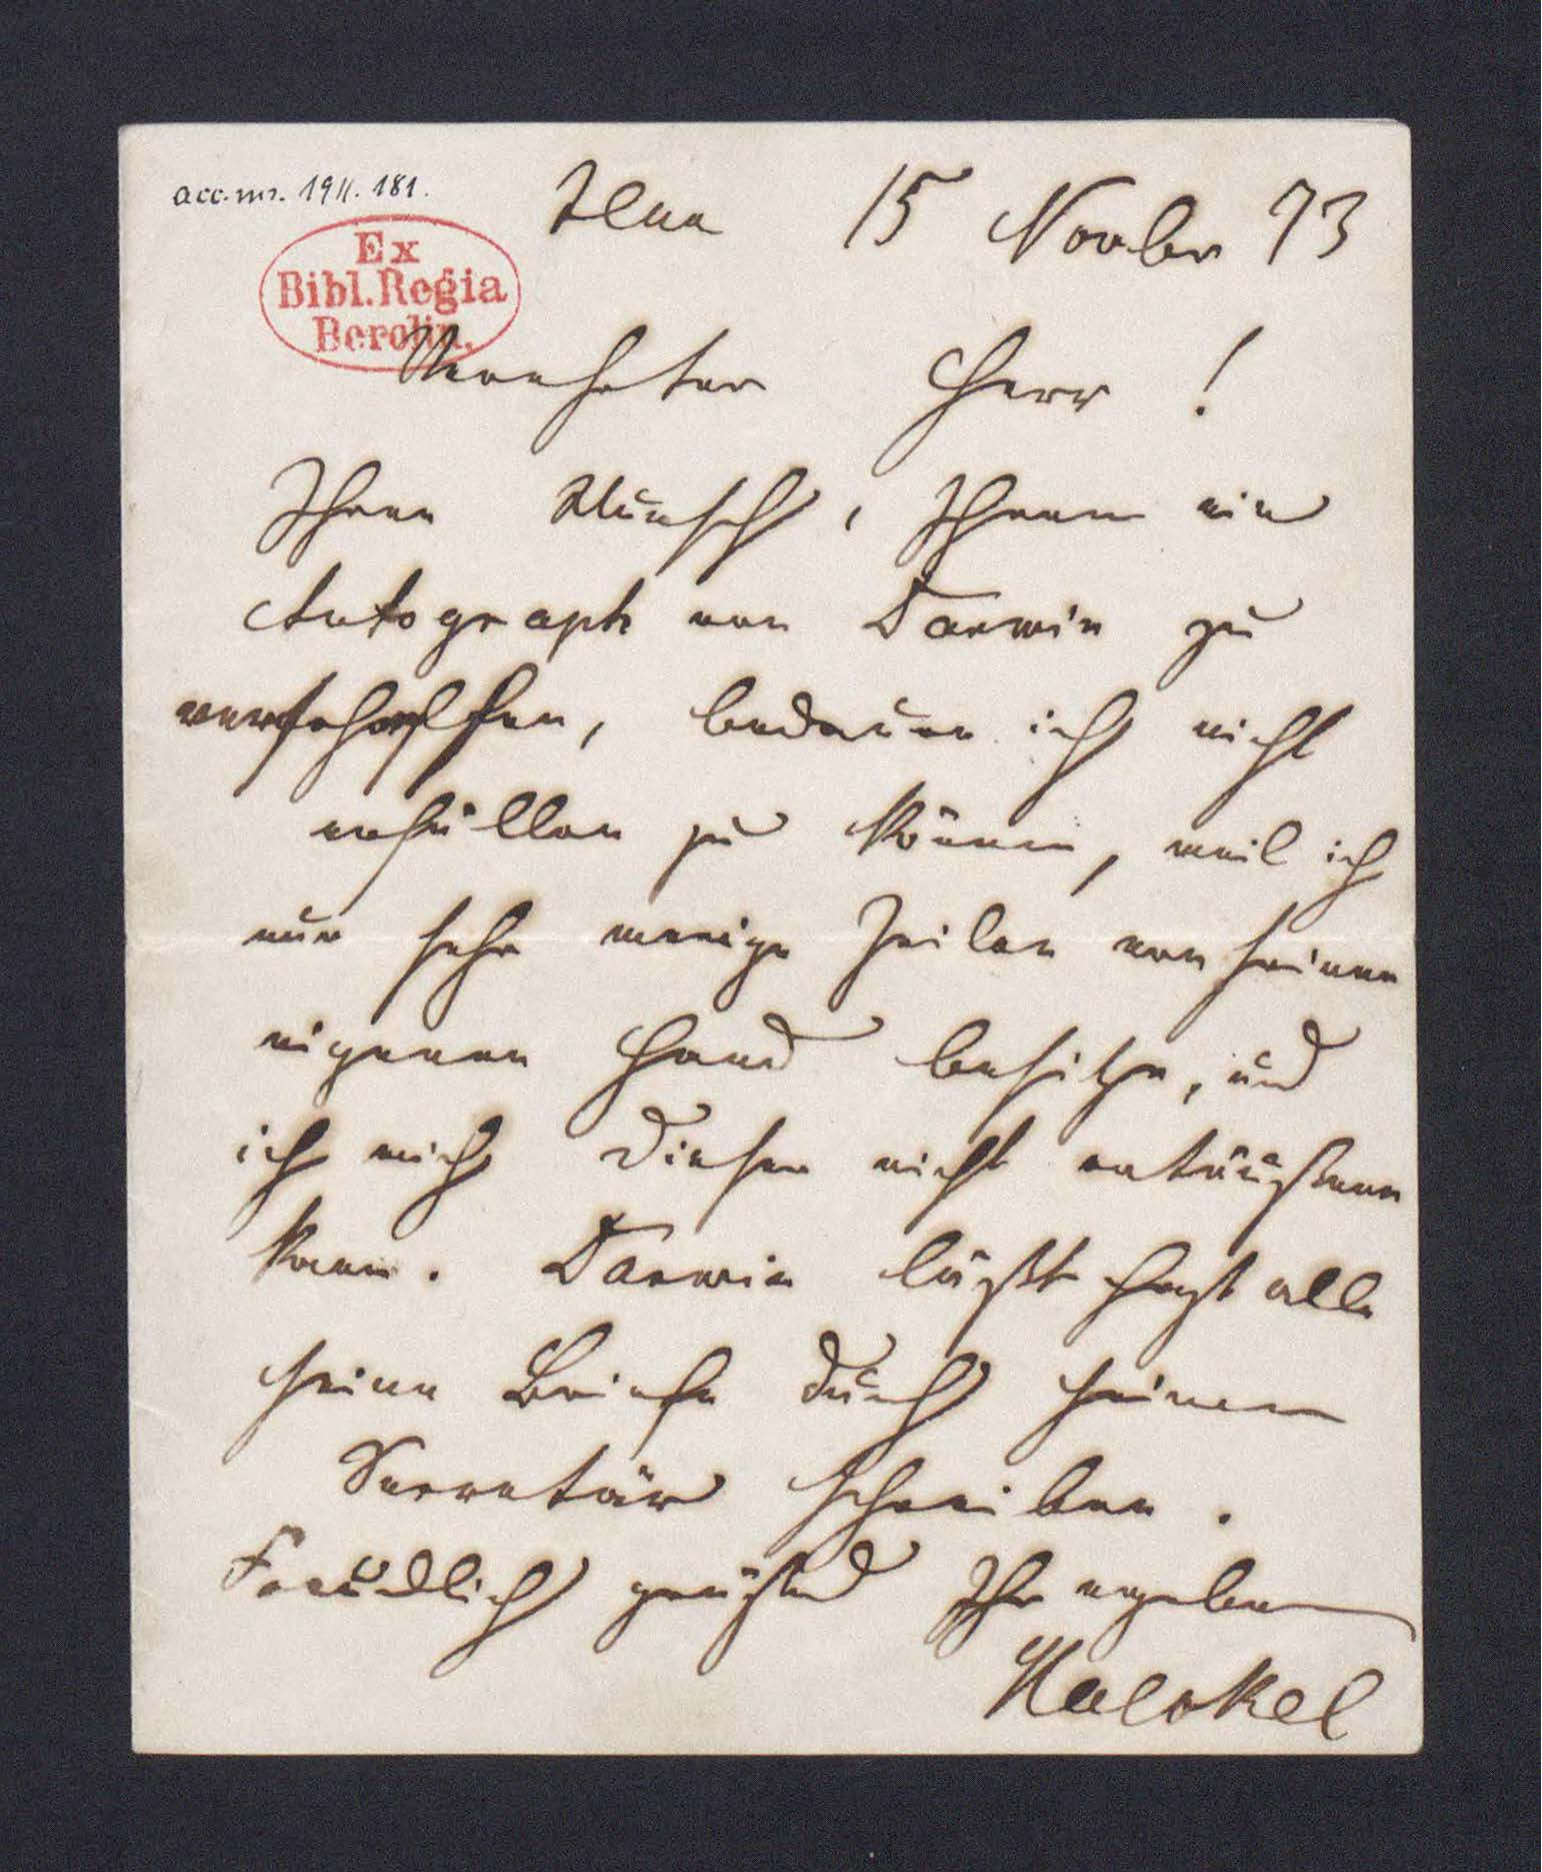 acc. nr. 1911. 181.
Jena 15 Novbr 73
Ex
Bibl. Regia
Berolin.
Verehrter Herr!
Ihren Wunsch, Ihnen ein
Autograph von Darwin zu
verschaffen, bedaure ich nicht
erfüllen zu können, weil ich
nur sehr wenige Zeilen von seiner
eigenen Hand besitze, und
ich mich dieser nicht entäußern
kann. Darwin läßt fast alle
seine Briefe durch seinen
Secretär schreiben.
Freundlich grüßend Ihr ergeben
Haeckel